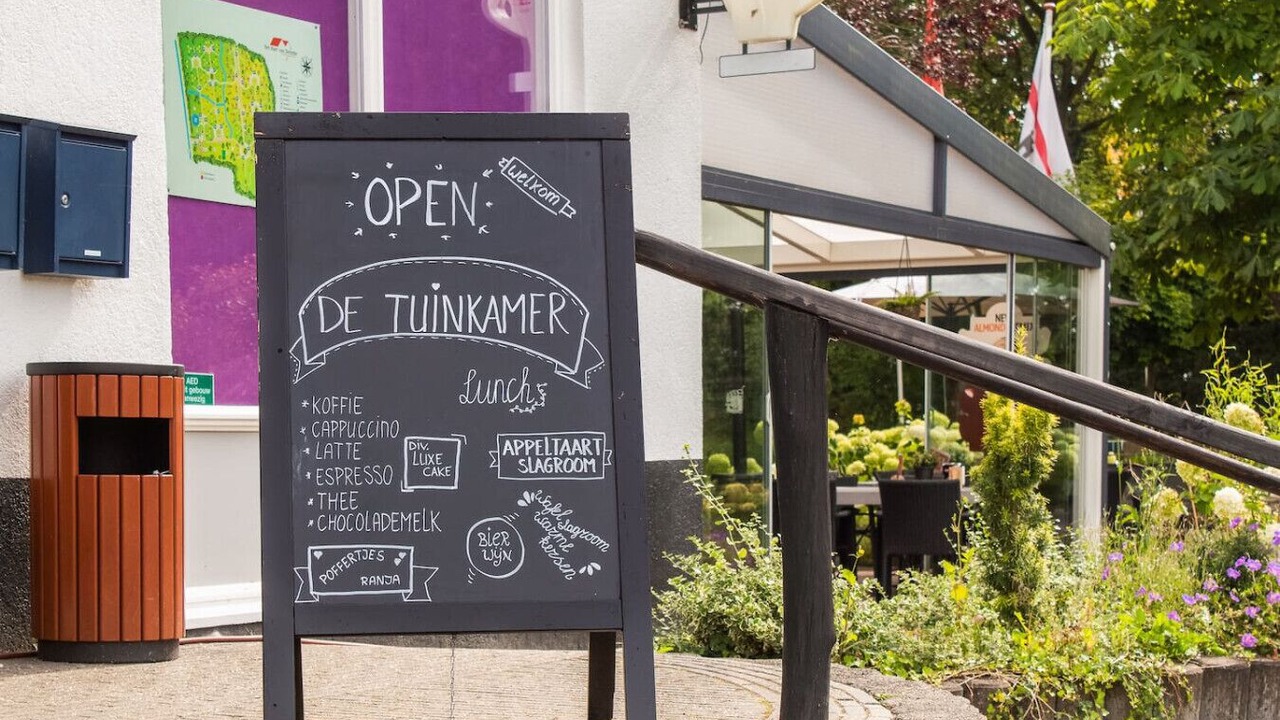 OPEN
welkom
DE TUINKAMER
Lunch
* KOFFIE
* CAPPUCCINO
* LATTE
* ESPRESSO
* THEE
* CHOCOLADEMELK
DIV.
LUXE
CAKE
APPELTAART
SLAGROOM
BIER
WIJN
Wafel
slagroom
warme
kersen
POFFERTJES
RANJA
AED